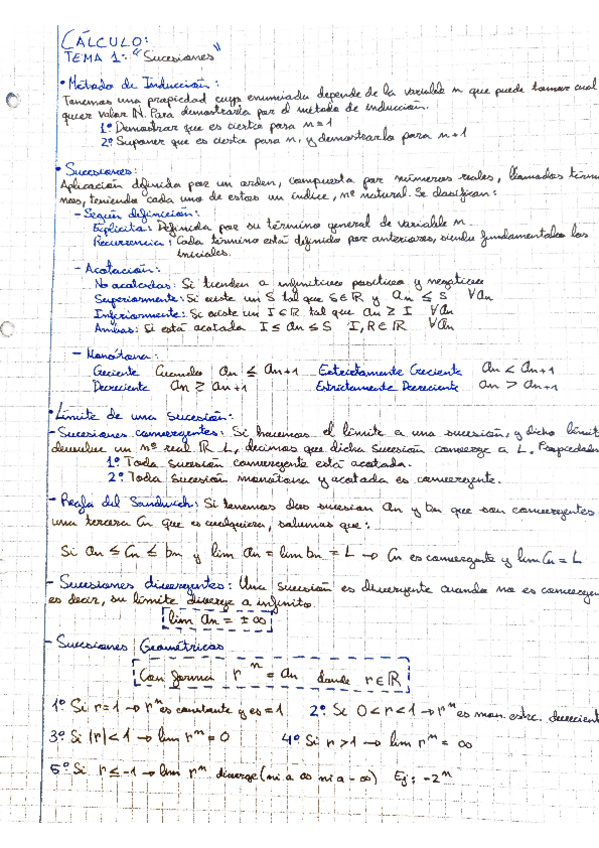 CÁLCULO:
TEMA 1: "Sucesiones"
• Método de Inducción:
Tenemos una propiedad cuyo enunciado depende de la variable n que puede tomar cual
quier valor ℕ. Para demostrarla por el método de inducción.
1º Demostrar que es cierta para n = 1
2º Suponer que es cierta para n, y demostrarlo para n+1
• Sucesiones:
Aplicación definida por un orden, compuesta por números reales, llamados térmi
nos, teniendo cada uno de estos un índice, nº natural. Se clasifican:
- Según definición:
Explícita: Definida por su término general de variable n.
Recurrencia: Cada término está definido por anteriores, siendo fundamentales los
iniciales.
- Acotación:
No acotadas: Si tienden a infinitivo positivo y negativo
Superiormente: Si existe un S tal que S∈ℝ y an ≤ S ∀an
Inferiormente: Si existe un I∈ℝ tal que an ≥ I ∀an
Ambas: Si está acotada I ≤ an ≤ S I,R∈ℝ ∀an
- Monótona:
Creciente Cuando an ≤ an+1 Estrictamente Creciente an < an+1
Decreciente an ≥ an+1 Estrictamente Decreciente an > an+1
• Límite de una sucesión:
- Sucesiones convergentes: Si hacemos el límite a una sucesión, y dicho límit
devuelve un nº real ℝ L, decimos que dicha sucesión converge a L. Propiedades
1º Toda sucesión convergente está acotada.
2º Toda sucesión monótona y acotada es convergente.
- Regla del Sandwich: Si tenemos dos sucesion an y bn que son convergentes
una tercera Cn que es cualquiera, sabemos que:
Si an ≤ Cn ≤ bn y lim an = lim bn = L → Cn es convergente y lim Cn = L
- Sucesiones divergentes: Una sucesión es divergente cuando no es convergen
es decir, su límite diverge a infinito.
lim an = ± ∞
- Sucesiones Geométricas
Con forma r^n = an donde r∈ℝ
1º Si r=1 → r^n es constante y es = 1 2º Si 0<r<1 → r^n es mon. estre. decrecient
3º Si |r|<1 → lim r^n = 0 4º Si r>1 → lim r^n = ∞
5º Si r ≤ -1 → lim r^n diverge (ni a ∞ ni a -∞) Ej: -2^n